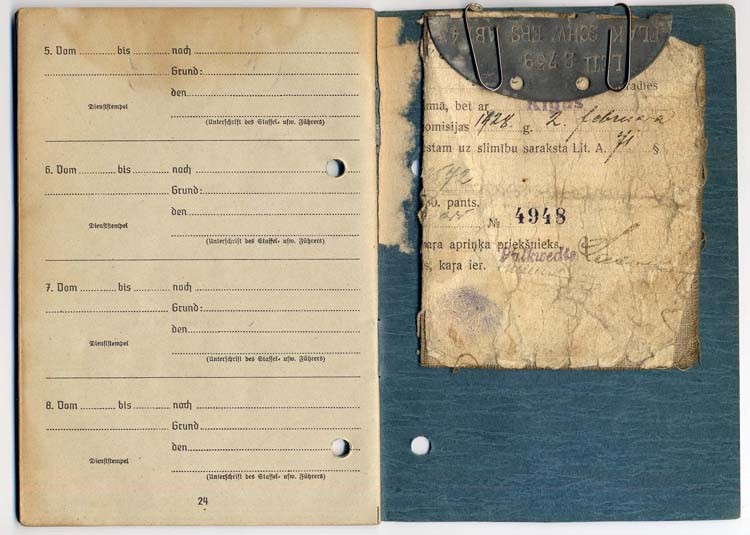 5. Vom ........ bis ........ nach ........
Grund:
den
Dienststempel
(Unterschrift des Staffel- usw. Führers)
6. Vom ........ bis ........ nach ........
Grund:
den
Dienststempel
(Unterschrift des Staffel- usw. Führers)
7. Vom ........ bis ........ nach ........
Grund:
den
Dienststempel
(Unterschrift des Staffel- usw. Führers)
8. Vom ........ bis ........ nach ........
Grund
den
Dienststempel
(Unterschrift des Staffel- usw. Führers)
24
LETT 8769
radies
bet ar Rīgas
omisijas 1928. g. 2. februara
stam uz slimību saraksta Lit. A. §
72
pants.
№ 4948
apriņķa priekšnieks,
Pulkwedis
kaŗa ier.